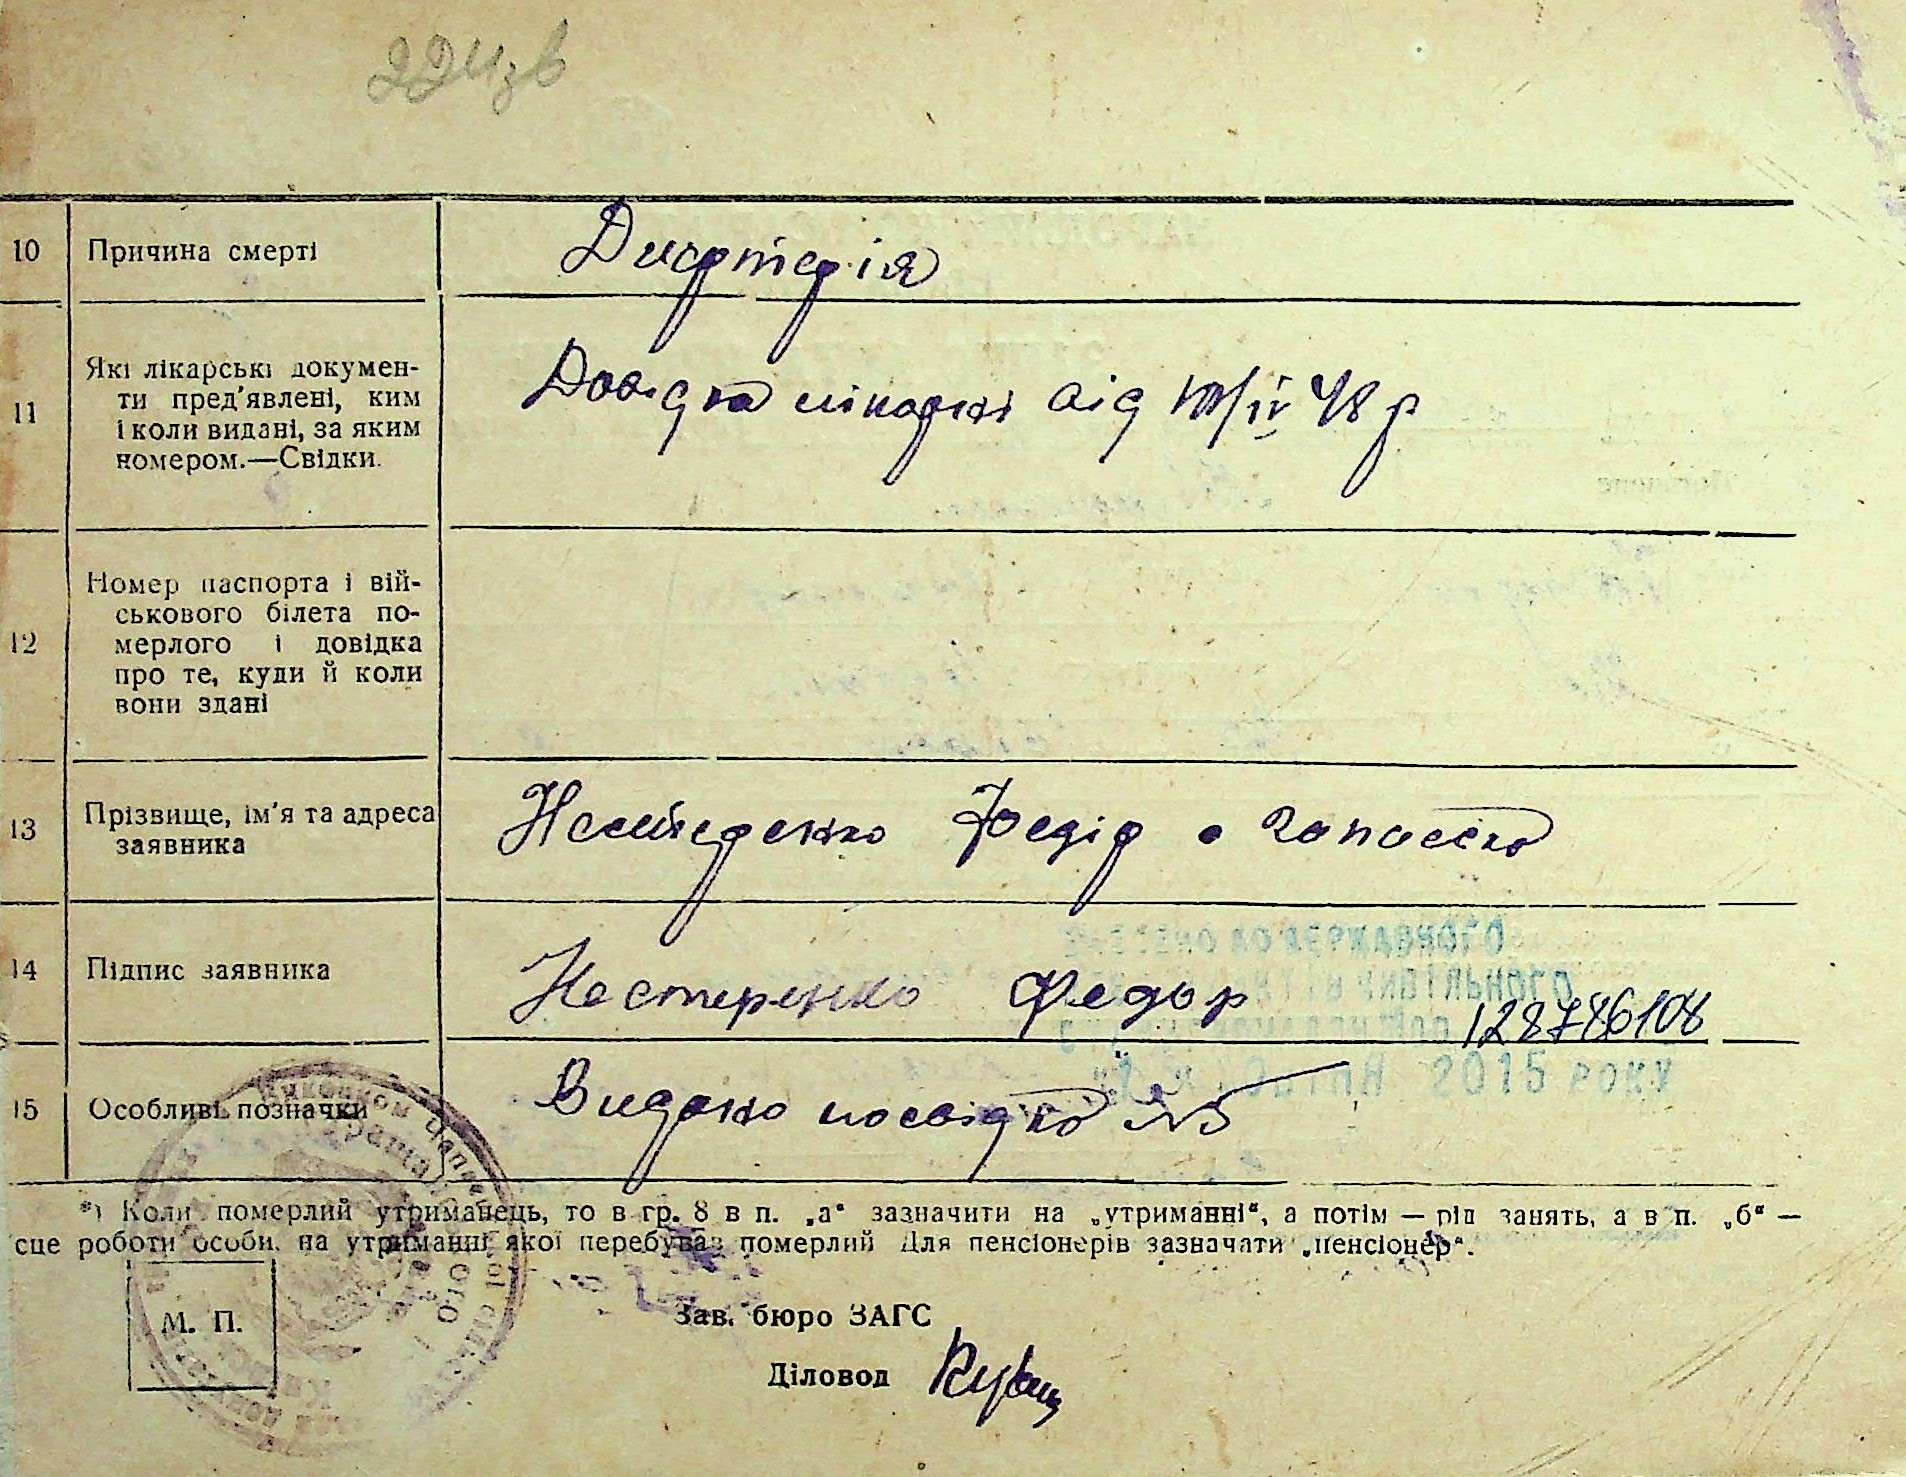 10 Причина смерті Дифтерія
11 Які лікарські докумен-
ти пред'явлені, ким
і коли видані, за яким
номером.—Свідки.
Довідка лікарні від /IV 48 р
12 Номер паспорта і вій-
ськового білета по-
мерлого і довідка
про те, куди й коли
вони здані
13 Прізвище, ім'я та адреса
заявника
Нестеренко Федір с
14 Підпис заявника Нестеренко Федор
ДО ДЕРЖАВНОГО
ЦИВІЛЬНОГО
128786108
2015 РОКУ
15 Особливі позначки Видано посвідка №5
*) Коли померлий утриманець, то в гр. 8 в п. „а“ зазначити на „утриманні“, а потім — рід занять, а в п. „б“ —
сце роботи особи, на утриманні якої перебував померлий Для пенсіонерів зазначати „пенсіонер“.
М. П.
Зав. бюро ЗАГС
Діловод